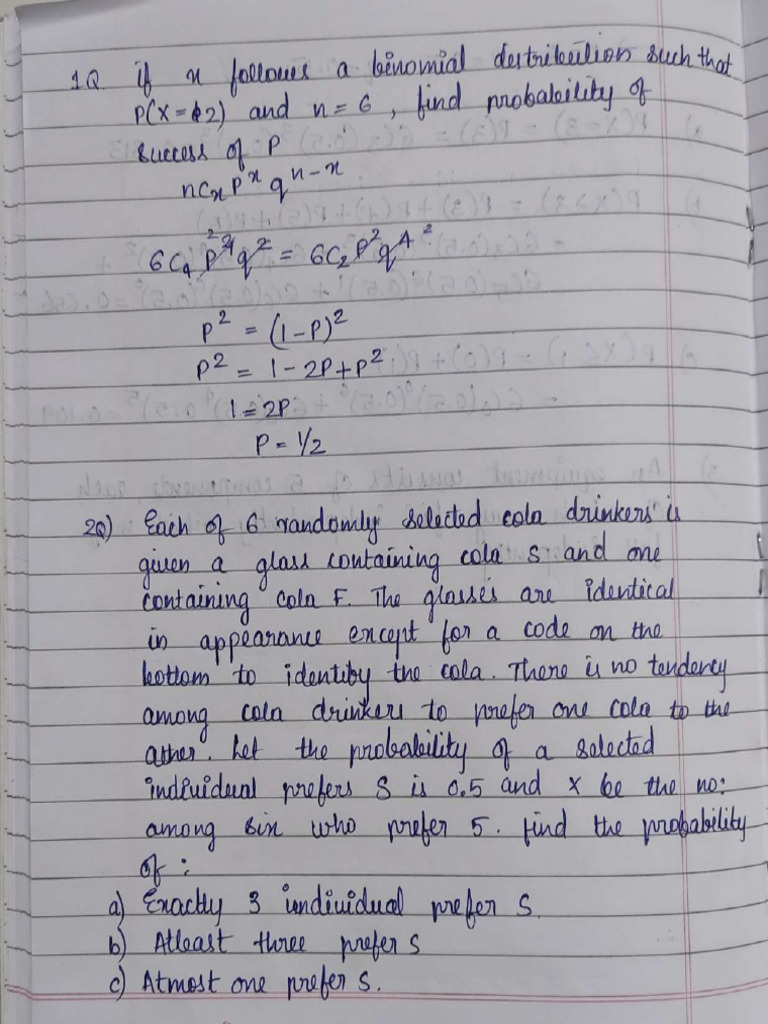 1Q if x follows a binomial distribution such that
P(X=2) and n = 6, find probability of
success of P
nCx P^x q^n-x
6C4 P^4 q^2 = 6C2 P^2 q^4
P^2 = (1-P)^2
P^2 = 1-2P+P^2
1 = 2P
P = 1/2
2Q) Each of 6 randomly selected cola drinkers is
given a glass containing cola S and one
containing cola F. The glasses are identical
in appearance except for a code on the
bottom to identify the cola. There is no tendency
among cola drinkers to prefer one cola to the
other. Let the probability of a selected
individual prefers S is 0.5 and x be the no:
among six who prefer S. find the probability
of :
a) Exactly 3 individual prefer S.
b) Atleast three prefer S
c) Atmost one prefer S.